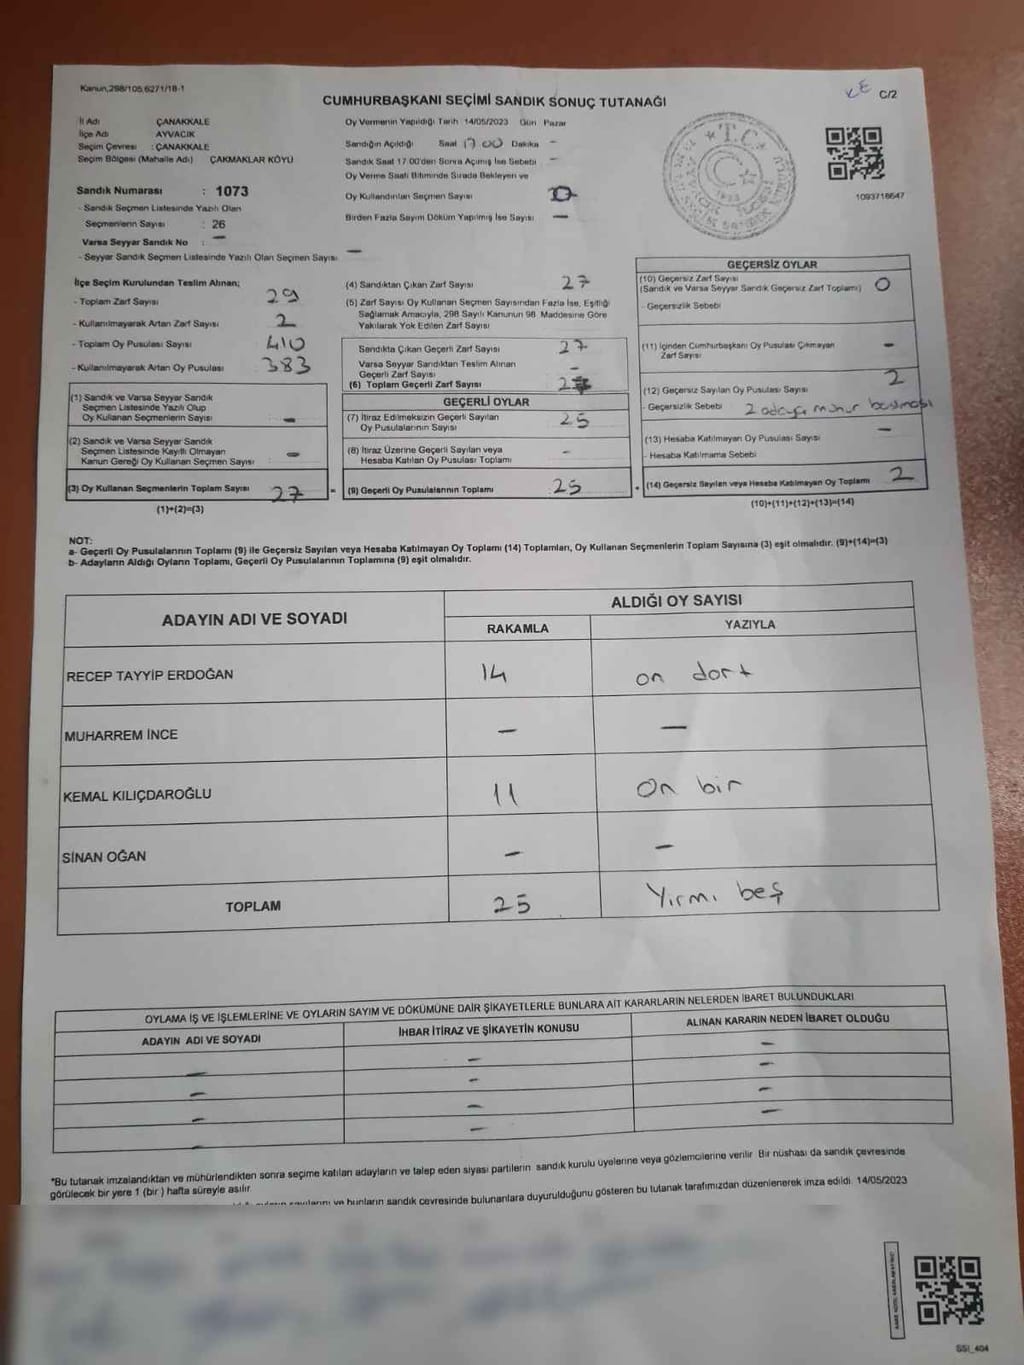 Kanun,298/105,6271/18-1
CUMHURBAŞKANI SEÇİMİ SANDIK SONUÇ TUTANAĞI
C/2
İl Adı ÇANAKKALE
İlçe Adı AYVACIK
Seçim Çevresi : ÇANAKKALE
Seçim Bölgesi (Mahalle Adı) ÇAKMAKLAR KÖYÜ
Sandık Numarası : 1073
- Sandık Seçmen Listesinde Yazılı Olan
Seçmenlerin Sayısı : 26
Varsa Seyyar Sandık No : —
- Seyyar Sandık Seçmen Listesinde Yazılı Olan Seçmen Sayısı —
Oy Vermenin Yapıldığı Tarih 14/05/2023 Gün Pazar
Sandığın Açıldığı Saat 17 00 Dakika -
Sandık Saat 17.00'den Sonra Açımış İse Sebebi -
Oy Verme Saati Bitiminde Sırada Bekleyen ve
Oy Kullandırılan Seçmen Sayısı
Birden Fazla Sayım Döküm Yapılmış İse Sayısı —
T.C.
1093718647
İlçe Seçim Kurulundan Teslim Alınan;
- Toplam Zarf Sayısı 29
- Kullanılmayarak Artan Zarf Sayısı 2
- Toplam Oy Pusulası Sayısı 410
- Kullanılmayarak Artan Oy Pusulası 383
(1) Sandık ve Varsa Seyyar Sandık
Seçmen Listesinde Yazılı Olup
Oy Kullanan Seçmenlerin Sayısı : —
(2) Sandık ve Varsa Seyyar Sandık
Seçmen Listesinde Kayıtlı Olmayan
Kanun Gereği Oy Kullanan Seçmen Sayısı : —
(3) Oy Kullanan Seçmenlerin Toplam Sayısı 27
(1)+(2)=(3)
(4) Sandıktan Çıkan Zarf Sayısı 27
(5) Zarf Sayısı Oy Kullanan Seçmen Sayısından Fazla İse, Eşitliği
Sağlamak Amacıyla, 298 Sayılı Kanunun 98. Maddesine Göre
Yakılarak Yok Edilen Zarf Sayısı
Sandıkta Çıkan Geçerli Zarf Sayısı 27
Varsa Seyyar Sandıktan Teslim Alınan
Geçerli Zarf Sayısı -
(6) Toplam Geçerli Zarf Sayısı
GEÇERLİ OYLAR
(7) İtiraz Edilmeksizin Geçerli Sayılan
Oy Pusulalarının Sayısı 25
(8) İtiraz Üzerine Geçerli Sayılan veya
Hesaba Katılan Oy Pusulası Toplamı -
= (9) Geçerli Oy Pusulalarının Toplamı 25
GEÇERSİZ OYLAR
(10) Geçersiz Zarf Sayısı
(Sandık ve Varsa Seyyar Sandık Geçersiz Zarf Toplamı) 0
- Geçersizlik Sebebi
(11) İçinden Cumhurbaşkanı Oy Pusulası Çıkmayan
Zarf Sayısı -
(12) Geçersiz Sayılan Oy Pusulası Sayısı 2
- Geçersizlik Sebebi 2 adaya mühür basılması
(13) Hesaba Katılmayan Oy Pusulası Sayısı —
- Hesaba Katılmama Sebebi
+ (14) Geçersiz Sayılan veya Hesaba Katılmayan Oy Toplamı 2
(10)+(11)+(12)+(13)=(14)
NOT:
a- Geçerli Oy Pusulalarının Toplamı (9) ile Geçersiz Sayılan veya Hesaba Katılmayan Oy Toplamı (14) Toplamları, Oy Kullanan Seçmenlerin Toplam Sayısına (3) eşit olmalıdır. (9)+(14)=(3)
b- Adayların Aldığı Oyların Toplamı, Geçerli Oy Pusulalarının Toplamına (9) eşit olmalıdır.
ADAYIN ADI VE SOYADI
ALDIĞI OY SAYISI
RAKAMLA YAZIYLA
RECEP TAYYİP ERDOĞAN 14 on dört
MUHARREM İNCE — —
KEMAL KILIÇDAROĞLU 11 On bir
SİNAN OĞAN — —
TOPLAM 25 Yirmi beş
OYLAMA İŞ VE İŞLEMLERİNE VE OYLARIN SAYIM VE DÖKÜMÜNE DAİR ŞİKAYETLERLE BUNLARA AİT KARARLARIN NELERDEN İBARET BULUNDUKLARI
ADAYIN ADI VE SOYADI İHBAR İTİRAZ VE ŞİKAYETİN KONUSU ALINAN KARARIN NEDEN İBARET OLDUĞU
— — —
— — —
— — —
— — —
*Bu tutanak imzalandıktan ve mühürlendikten sonra seçime katılan adayların ve talep eden siyasi partilerin sandık kurulu üyelerine veya gözlemcilerine verilir. Bir nüshası da sandık çevresinde
görülecek bir yere 1 (bir) hafta süreyle asılır.
ve bunların sandık çevresinde bulunanlara duyurulduğunu gösteren bu tutanak tarafımızdan düzenlenerek imza edildi. 14/05/2023
SSI_404